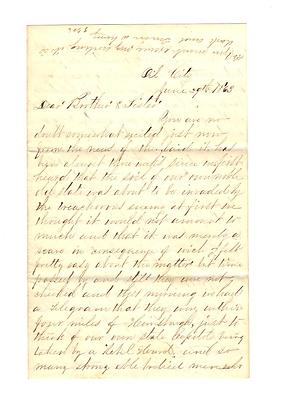 Oil City
June 29th 1863
Dear Brother & Sister
You are no
doubt somewhat excited just now
from the news of the Raid it has
been almost three weeks since we first
heard that the soil of our own noble
old state was about to be invaded by
the treacherous enemy at first we
thought it would not amount to
much and that it was merely a
scare in consequence of wich I felt
pretty easy about the matter but time
passed by and still they are not
checked and this morning we had
a telegram that they were within
four miles of Harrisburgh, just to
think of our own State Capitol being
taken by a Rebel Horde, and so
many strong able bodied men who